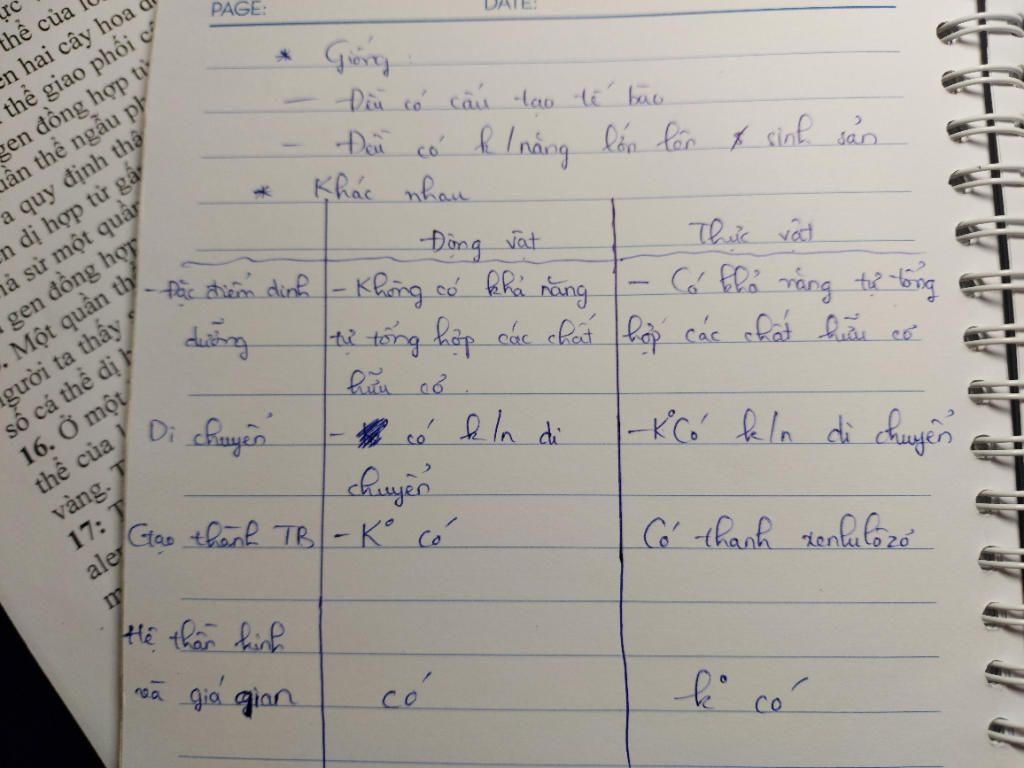 PAGE:
DATE:
* Giống
- Đều có cấu tạo tế bào
- Đều có k/năng lớn lên sinh sản
* Khác nhau
Động vật
Thực vật
- Đặc điểm dinh dưỡng
- Không có khả năng
tự tổng hợp các chất
hữu cơ.
- Có khả năng tự tổng
hợp các chất hữu cơ
Di chuyển
- có k/n di
chuyển
- K° Có k/n di chuyển
thành TB
- K° có
Có thanh xenlulôzơ
Hệ thần kinh
và giá gian
có
k° có
thể của
en hai cây hoa
thể giao phối
gen đồng hợp tử
uần thể ngẫu ph
a quy định thâ
n dị hợp tử gấ
ả sử một quần
gen đồng hợp
. Một quần thể
gười ta thấy
số cá thể dị h
16. Ở một
thể của
vàng.
17:
alen